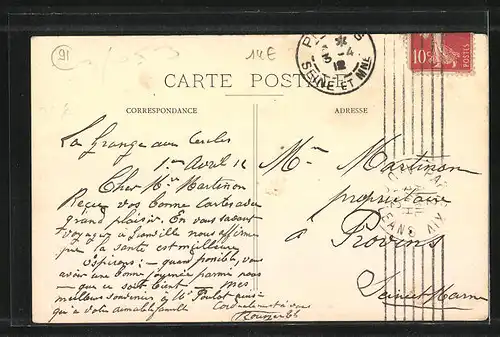 91
14E
10c
SEINE ET MNE
CARTE POSTALE
CORRESPONDANCE
ADRESSE
La Grange aux Cercles
1er Avril 12
Cher Mr Martinon
Reçu vos bonnes cartes avec
grand plaisir. En vous savant
voyager à Grenville nous affirme
que la santé est meilleure
Espérons; — quand possible, vous
avoir une bonne journée parmi nous
— que ce soit bientôt — Mes
meilleurs souvenirs à Mr Poulot ainsi
qu'à votre aimable famille
Cordialement à vous
Mr Martinon
propriétaire
à Provins
Seine et Marne